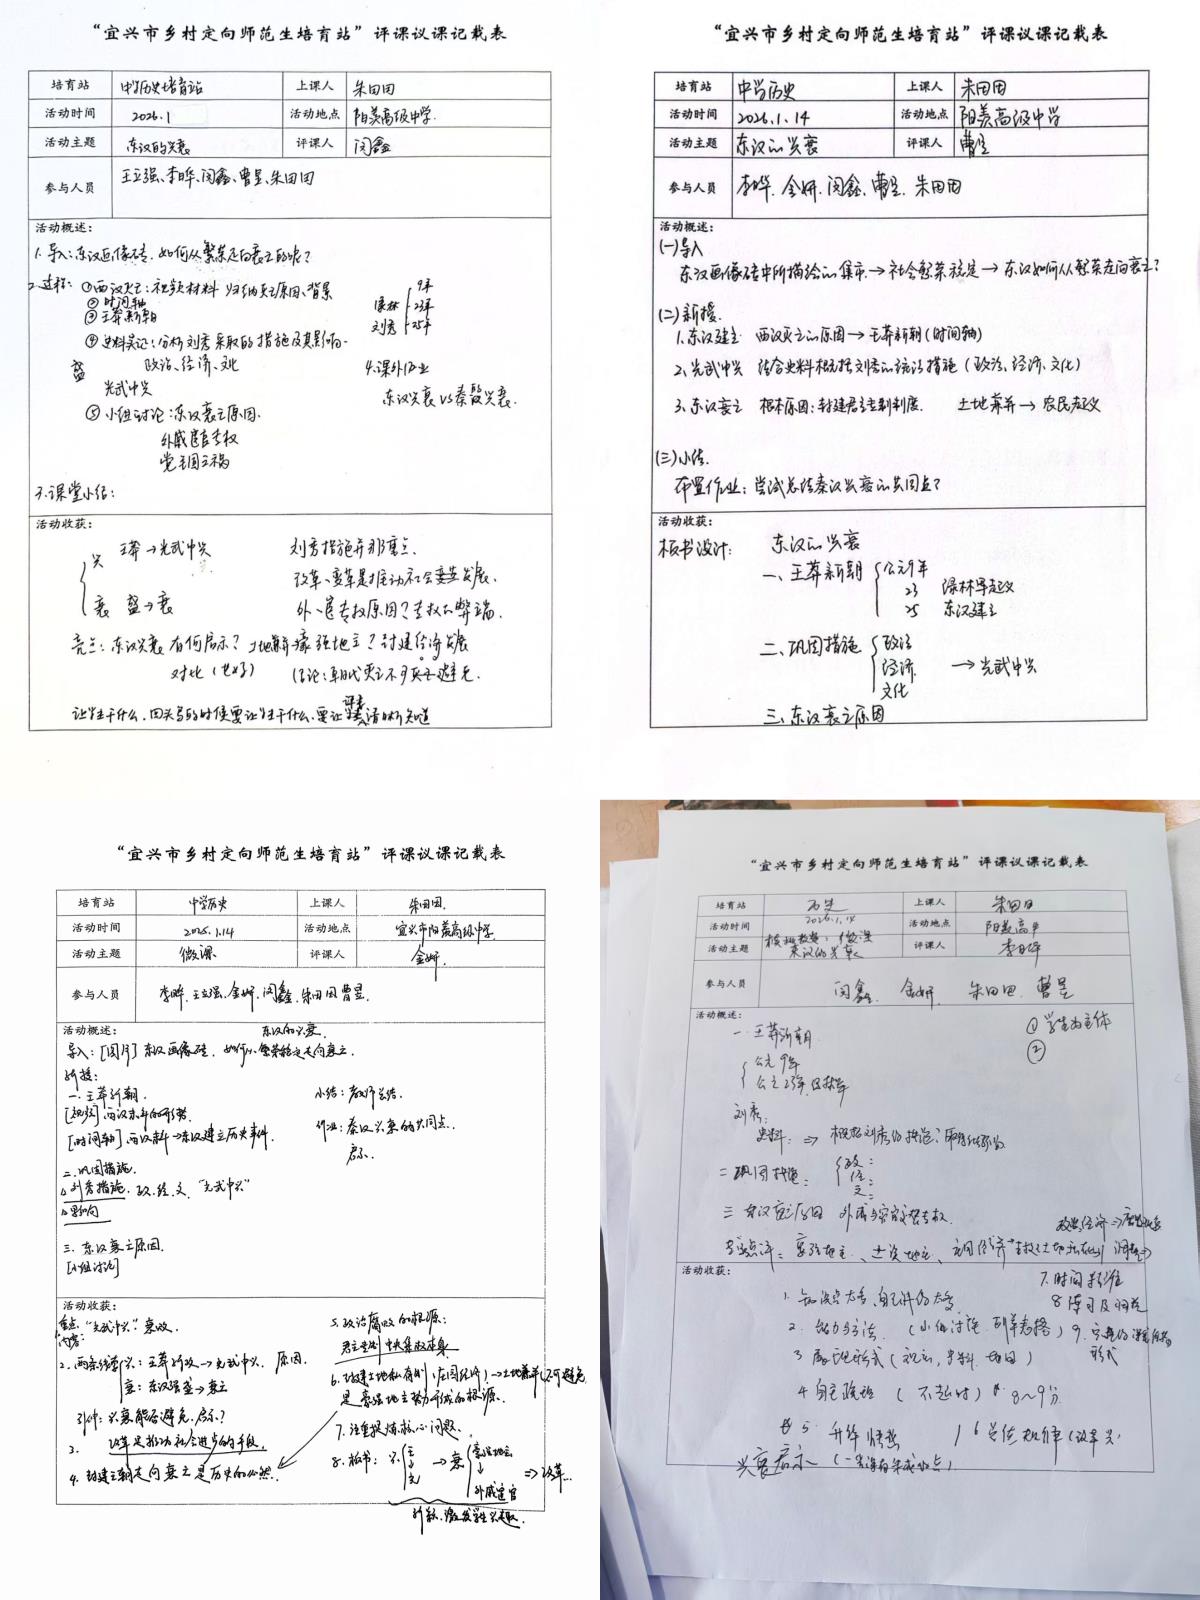 “宜兴市乡村定向师范生培育站”评课议课记载表
培育站 中学历史培育站 上课人 朱田田
活动时间 2026.1 活动地点 阳羡高级中学.
活动主题 东汉的兴衰 评课人 闵鑫
参与人员 王立强、李晔、闵鑫、曹昱、朱田田
活动概述：
1. 导入：东汉画像砖，如何从繁荣走向衰亡的呢？
2. 过程：①西汉灭亡：视频材料 归纳灭亡原因、背景
②时间轴
③王莽新朝
9年
绿林 23年
刘秀 25年
④史料实证：分析刘秀采取的措施及其影响.
盛 政治、经济、文化
光武中兴
4. 课外作业
东汉兴衰 VS 秦毁兴衰.
⑤小组讨论：东汉衰亡原因.
外戚宦官专权
党锢之祸
3. 课堂小结：
活动收获：
兴 王莽→光武中兴
衰 盛→衰
刘秀措施并那重点.
改革、变革是推动社会变革发展.
外、宦专权原因？专权的弊端.
亮点：东汉兴衰有何启示？土地兼并豪强地主？封建经济发展
对比 结论：朝代灭亡不可避免.
让学生干什么，回头写的时候要让学生干什么，要让学生清晰知道
“宜兴市乡村定向师范生培育站”评课议课记载表
培育站 中学历史 上课人 朱田田
活动时间 2026.1.14 活动地点 阳羡高级中学
活动主题 东汉的兴衰 评课人 曹昱
参与人员 李晔、金妍、闵鑫、曹昱、朱田田
活动概述：
(一)导入
东汉画像砖中所描绘的集市→社会繁荣稳定→东汉如何从繁荣走向衰亡？
(二)新授.
1. 东汉建立 西汉灭亡的原因→王莽新朝(时间轴)
2. 光武中兴 结合史料概括刘秀的统治措施(政治、经济、文化)
3. 东汉衰亡 根本原因：封建君主专制制度. 土地兼并→农民起义
(三)小结.
布置作业：尝试总结秦汉兴衰的共同点？
活动收获：
板书设计： 东汉的兴衰
一、王莽新朝 公元9年
23 绿林军起义
25 东汉建立
二、巩固措施 政治
经济 →光武中兴
文化
三、东汉衰亡原因
“宜兴市乡村定向师范生培育站”评课议课记载表
培育站 中学历史 上课人 朱田田.
活动时间 2026.1.14 活动地点 宜兴市阳羡高级中学.
活动主题 微课 评课人 金妍.
参与人员 李晔、王立强、金妍、闵鑫、朱田田、曹昱.
活动概述： 东汉的兴衰.
导入：[图片] 东汉画像砖. 如何从繁荣稳定走向衰亡.
新授：
一. 王莽新朝.
[视频] 西汉末年的形势.
[时间轴] 西汉末年→东汉建立历史事件
小结：教师总结.
作业：秦汉兴衰的共同点.
启示.
二. 巩固措施.
1. 刘秀措施. 政、经、文. “光武中兴”
2. 影响
三. 东汉衰亡原因.
[小组讨论]
活动收获：
1. 重点：“光武中兴”、衰败.
内容：
2. 两条线索 兴：王莽新政→光武中兴. 原因.
衰：东汉强盛→衰亡
升华：兴衰能否避免. 启示？
3. 改革是推动社会进步的手段.
4. 封建王朝走向衰亡是历史的必然.
5. 政治腐败的根源：
君主专制 中央集权本身
6. 封建土地私有制(庄园经济)→土地兼并(不可避免
是豪强地主势力形成的根源.
7. 注重提炼核心问题.
8. 板书：兴 →衰 豪强地主
外戚宦官 ⇒改革...
新颖. 激发学生兴趣.
“宜兴市乡村定向师范生培育站”评课议课记载表
培育站 历史 上课人 朱田田
活动时间 2026.1.14 活动地点 阳羡高中
活动主题 微课 东汉的兴衰 评课人 李晔
参与人员 闵鑫 金妍 朱田田 曹昱
活动概述：
一. 王莽新朝
公元9年
公元23年
①学生为主体
②
刘秀：
史料：⇒ 概括刘秀的措施？
二 巩固措施： 政：
经：
文：
三 东汉衰亡原因 外戚与宦官交替专权.
专家点评：豪强地主、
活动收获：
7. 时间
8 练习及
2. 能力与方法. (小组讨论、列举表格)
3 展现形式(视频、史料、
4 (不超时) 8~9分
5. 升华情感
6 总结规律(改革
兴衰启示